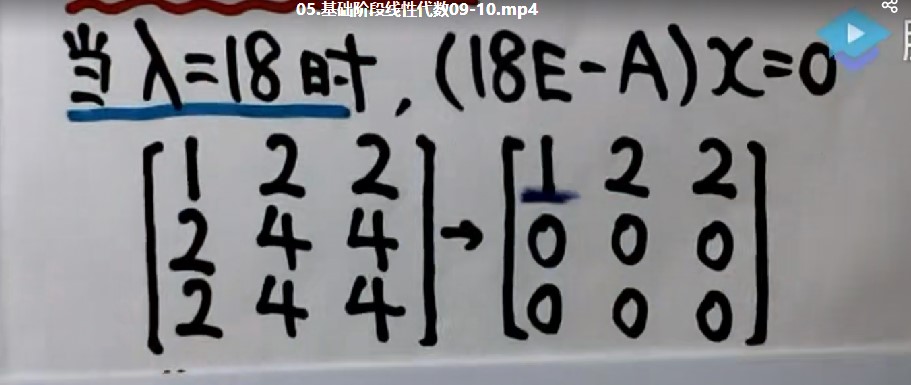 05.基础阶段线性代数09-10.mp4
当λ=18时, (18E-A)x=0
[1 2 2] → [1 2 2]
[2 4 4] [0 0 0]
[2 4 4] [0 0 0]